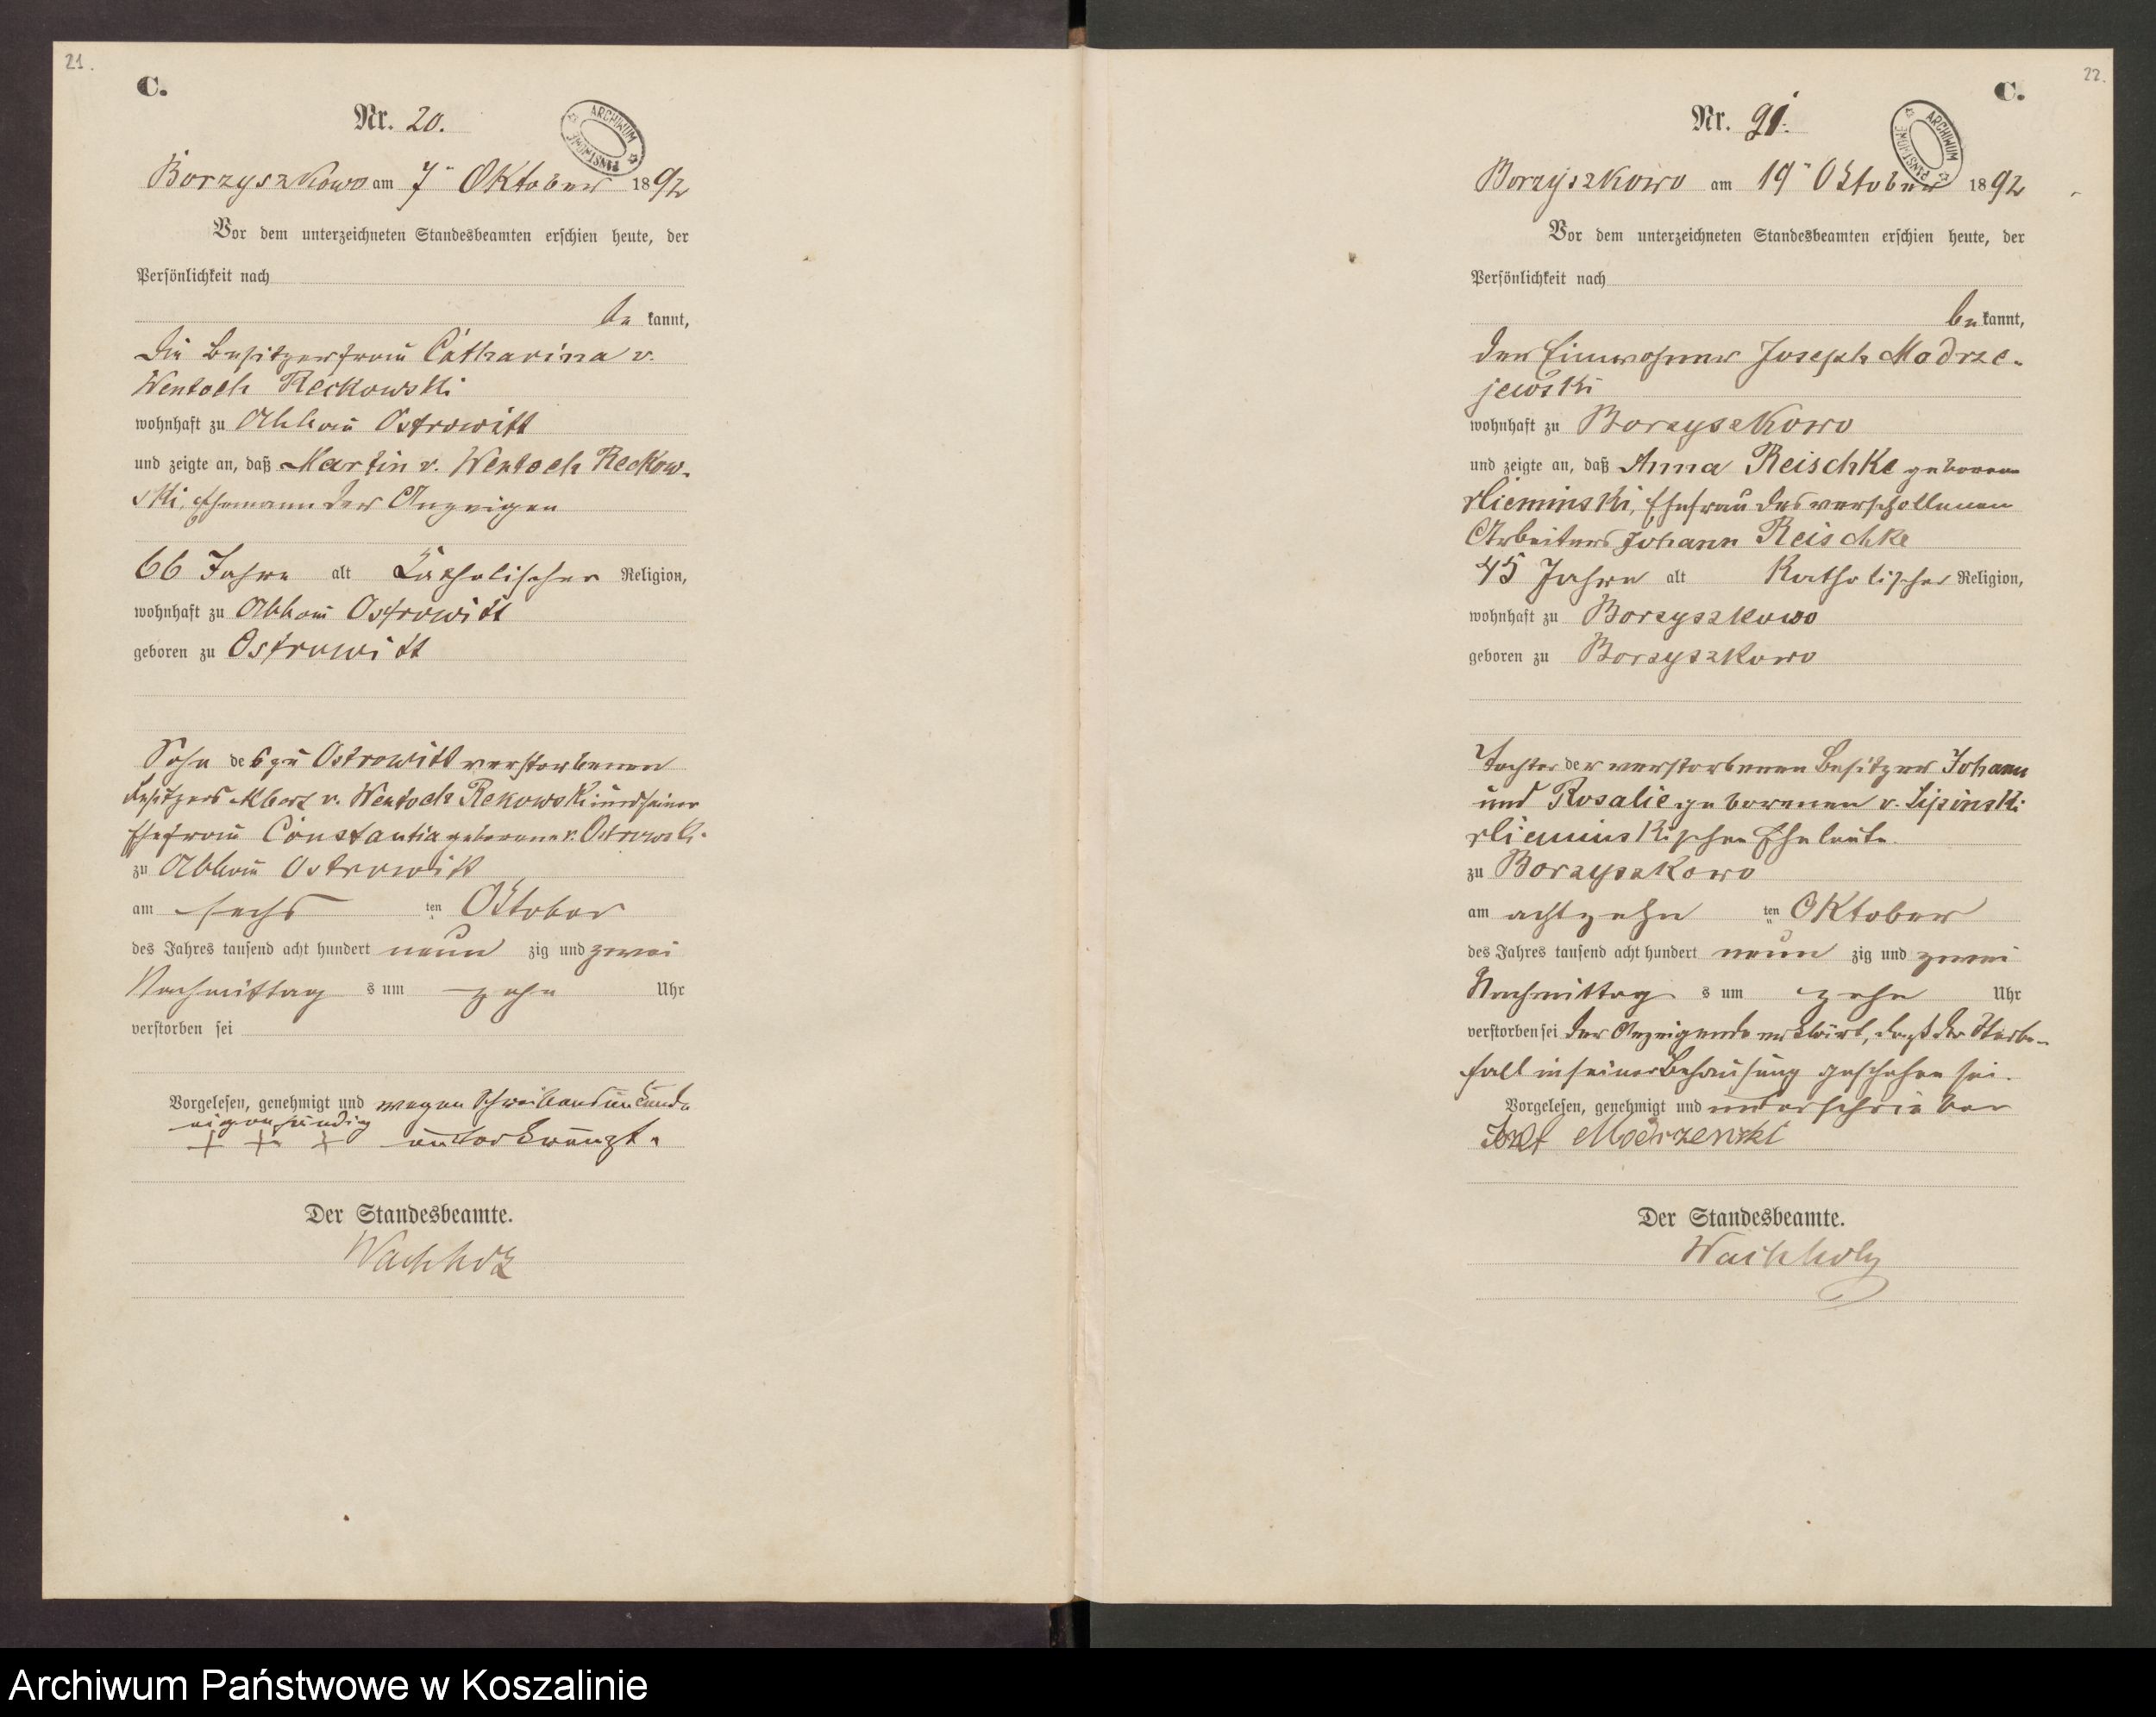 21.
C.
Nr. 20.
ARCHIWUM PAŃSTWOWE
Borzyszkowo am 7ten Oktober 1892
Vor dem unterzeichneten Standesbeamten erschien heute, der
Persönlichkeit nach
be kannt,
die Besitzerfrau Catharina v.
Wentoch Reckowski
wohnhaft zu Abbau Ostrowitt
und zeigte an, daß Martin v. Wentoch Reckow-
ski, Ehemann der Anzeigen
66 Jahre alt katholischer Religion,
wohnhaft zu Abbau Ostrowitt
geboren zu Ostrowitt
Sohn des zu Ostrowitt verstorbenen
Besitzers Albert v. Wentoch Rekowski und seiner
Ehefrau Constantia geborene v. Ostrowski
zu Abbau Ostrowitt
am sechs ten Oktober
des Jahres tausend acht hundert neun zig und zwei
Nachmittag s um zehn Uhr
verstorben sei
Vorgelesen, genehmigt und wegen Schreibensunkunde
eigenhändig
+ + + unterkreuzt.
Der Standesbeamte.
Wachholz
22.
C.
Nr. 21.
ARCHIWUM PAŃSTWOWE
Borzyszkowo am 19ten Oktober 1892
Vor dem unterzeichneten Standesbeamten erschien heute, der
Persönlichkeit nach
be kannt,
der Einwohner Joseph Modrze-
jewski
wohnhaft zu Borzyszkowo
und zeigte an, daß Anna Reischke geborene
Ehefrau des verschollenen
Arbeiters Johann Reischke
45 Jahre alt Katholischer Religion,
wohnhaft zu Borzyszkowo
geboren zu Borzyszkowo
Tochter der verstorbenen Besitzer Johann
und Rosalie geborenen v. Lipinski
Eheleute
zu Borzyszkowo
am achtzehn ten Oktober
des Jahres tausend acht hundert neun zig und zwei
Nachmittag s um zehn Uhr
verstorben sei der Anzeigende erklärt, daß der Sterbe-
fall in seiner Behausung geschehen sei.
Vorgelesen, genehmigt und unterschrieben
Modrzewski
Der Standesbeamte.
Wachholz
Archiwum Państwowe w Koszalinie